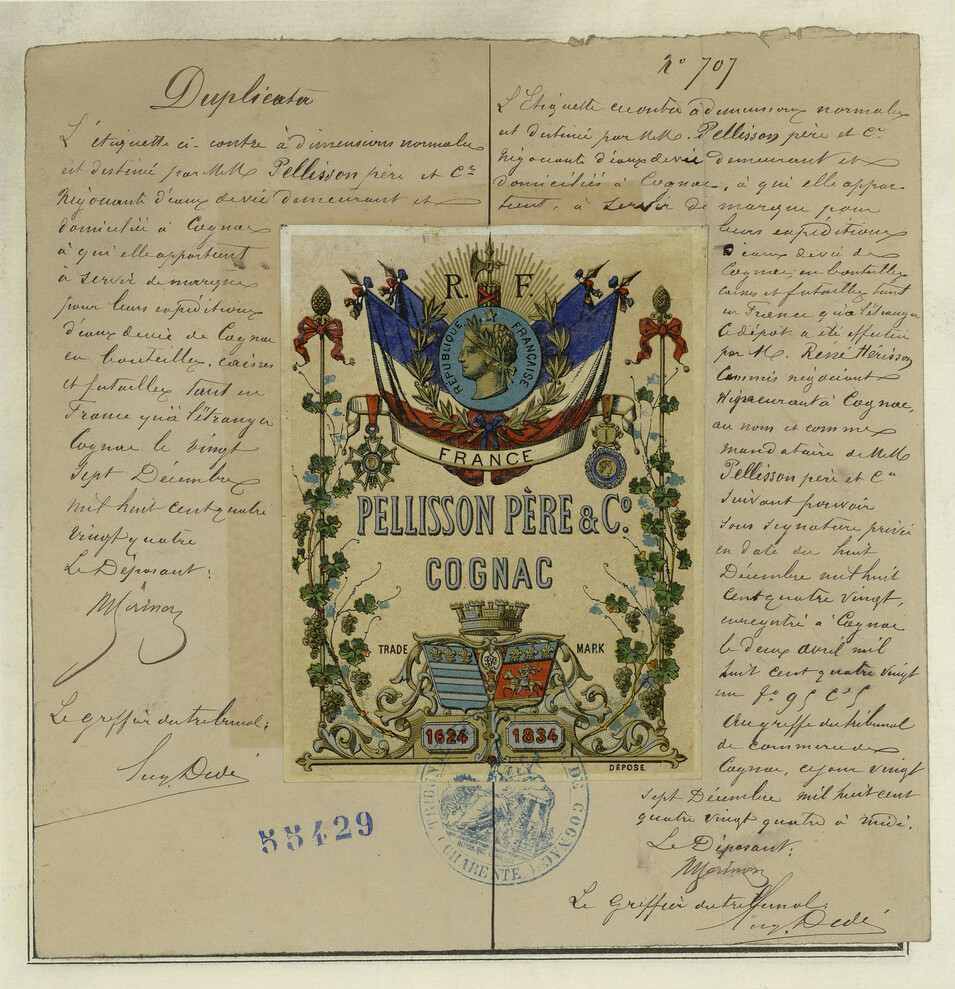 Duplicata
L'étiquette ci-contre à dimensions normales
est destinée par MM. Pellisson père et Cie
Négociants d'eaux de vie demeurant et
domiciliés à Cognac
à qui elle appartient
à servir de marque
pour leurs expéditions
d'eaux de vie de Cognac
en bouteilles, caisses
et futailles tant en
France qu'à l'étranger
Cognac le vingt
sept Décembre
mil huit cent quatre
vingt quatre
Le Déposant:
Le greffier du tribunal:
Eug. Dedé
55429
No 707
L'Etiquette ci contre à dimensions normales
est destinée par MM. Pellisson père et Cie
Négociants d'eaux de vie demeurant et
domiciliés à Cognac, à qui elle appar
tient, à servir de marque pour
leurs expéditions
d'eaux de vie de
Cognac en bouteilles
caisses et futailles tant
en France qu'à l'étranger
Ce dépôt a été effectué
par M. René Hérisson
Commis négociant
demeurant à Cognac,
au nom et comme
mandataire de MM
Pellisson père et Cie
suivant pouvoir
sous signature privée
en date du huit
Décembre mil huit
cent quatre vingt,
enregistré à Cognac
le deux avril mil
huit cent quatre vingt
un
Au greffe du tribunal
de commerce de
Cognac, ce jour vingt
sept Décembre mil huit cent
quatre vingt quatre à midi.
Le Déposant:
Le Greffier du tribunal:
Eug. Dedé
R. F.
RÉPUBLIQUE FRANÇAISE
FRANCE
PELLISSON PÈRE & Co.
COGNAC
TRADE MARK
1624 1834
DÉPOSÉ
TRIBUN DE COGNAC
(CHARENTE)